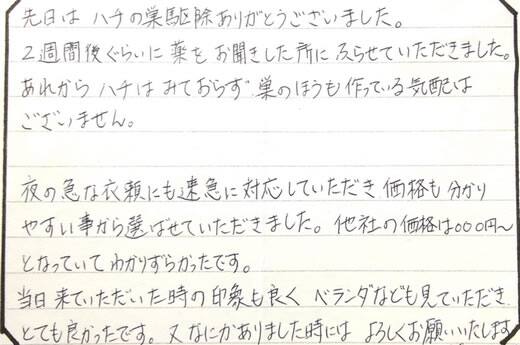 先日は ハチの巣駆除ありがとうございました。
2週間後ぐらいに 薬を お聞きした所に ふらせていただきました。
あれから ハチは みておらず 巣のほうも 作っている 気配は
ございません。
夜の急な衣頼にも速急に対応していただき 価格も 分かり
やすい事から選ばせていただきました。他社の価格は○○○円〜
となっていて わかりずらかったです。
当日 来ていただいた 時の 印象も良く ベランダなども 見ていただき
とても良かったです。又 なにかありました時には よろしくお願いいたします